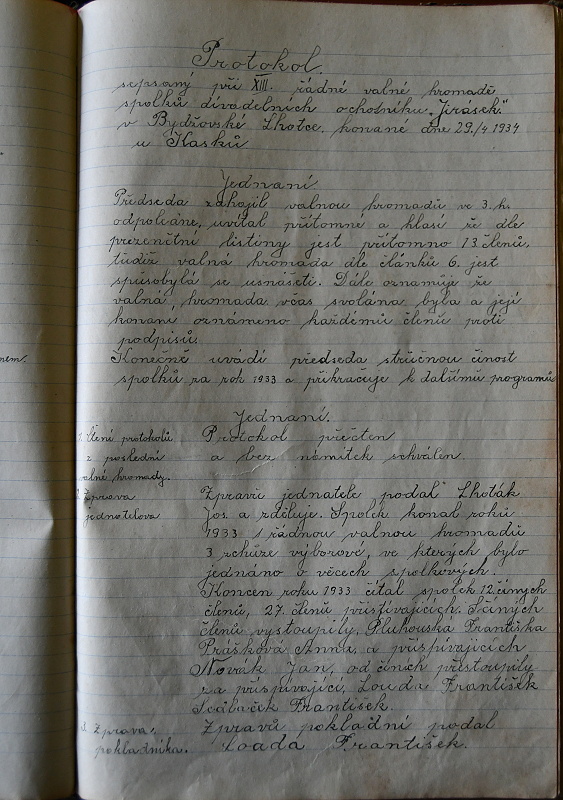 Protokol.
sepsaný při XIII. řádné valné hromadě
spolků divadelních ochotníku „Jirásek"
v Bydžovské Lhotce, konané dne 29./4 1934
u Kasků
Jednaní
Předseda zahájil valnou hromadů ve 3. h.
odpoledne, uvítal přítomné a hlasí že dle
prezenčtni listiny jest přítomno 13. členů,
tudíž valná hromada dle článků 6. jest
spůsobylá se usnášeti. Dále oznamuje že
valná, hromada včas svolána byla a její
konaní oznámeno každémů členů proti
podpisů.
Konečně uvádí předseda stručnou činost
spolků za rok 1933 a přikračuje k dalšímů programů
nem.
Jednaní.
1. Čtení protokolů
z poslední
valné hromady.
Protokol přečten
a bez námitek schválen.
2. Zprava
jednatelova
Zpravů jednatele podal Lhoták
Jos. a zděluje. Spolek konal roků
1933 1 řádnou valnou hromadů
3 schůze výborové, ve kterých bylo
jednáno o věcech spolkových.
Koncen roku 1933 čítal spolek 12. činych
členů, 27. členů přispívajících. S činých
členů vystoupily. Pluhouská Františka
Prášková Anna, a přispívajících
Novák Jan, od činích přestoupily
za přispívající, Louda František
František.
3. Zprava,
pokladníka.
Zpravů pokladní podal
Loada František.